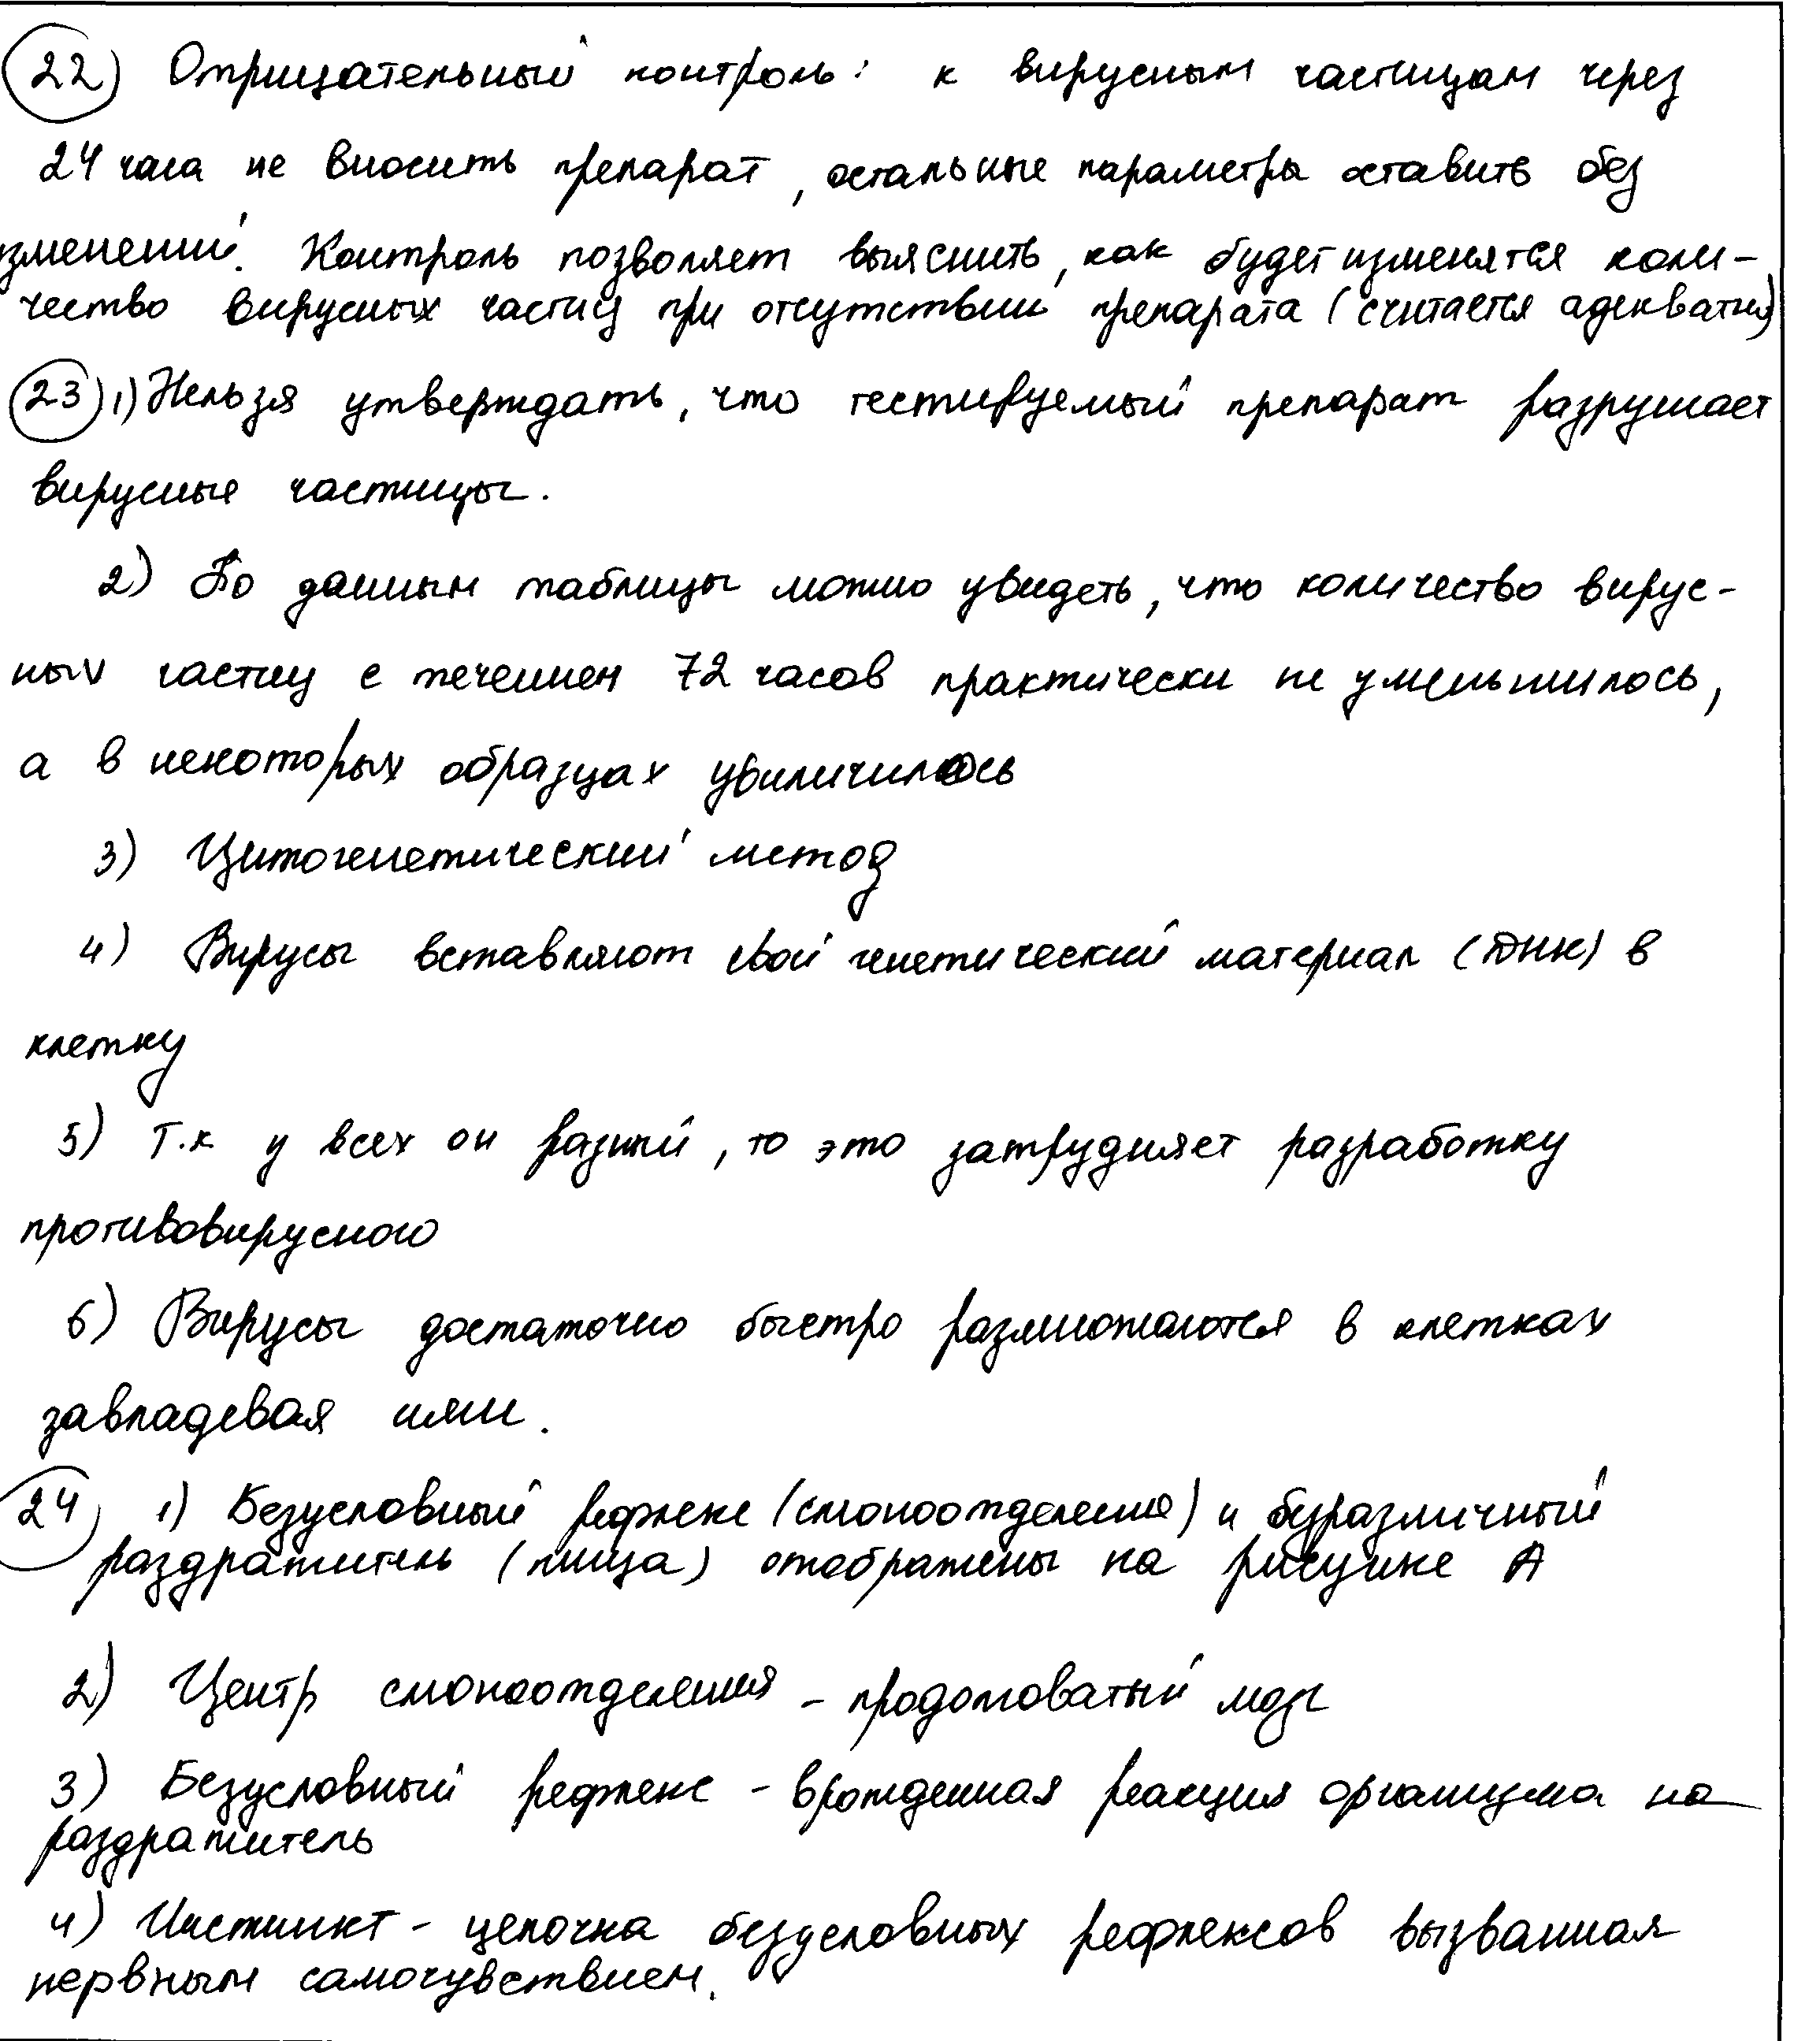 22) Отрицательный контроль: к вирусным частицам через
24 часа не вносить препарат, остальные параметры оставить без
зменений. Контроль позволяет выяснить, как будет изменятся коли-
чество вирусных частиц при отсутствии препарата (считается адекватн)
23) 1) Нельзя утверждать, что тестируемый препарат разрушает
вирусные частицы.
2) По данным таблицы можно увидеть, что количество вирус-
ных частиц с течением 72 часов практически не уменьшилось,
а в некоторых образцах увиличилось
3) Цитогенетический метод
4) Вирусы вставляют свой генетический материал (ДНК) в
клетку
5) Т.к у всех он разный, то это затрудняет разработку
противовирусного
6) Вирусы достаточно быстро размножаются в клетках
завладевая ими.
24) 1) Безусловный рефлекс (слюноотделения) и безразличный
раздражитель (пища) отображены на рисунке А
2) Центр слюноотделения - продолговатый мозг
3) Безусловный рефлекс - врожденная реакция организма на
раздражитель
4) Инстинкт - цепочка безусловных рефлексов вызванная
нервным самочувствием.